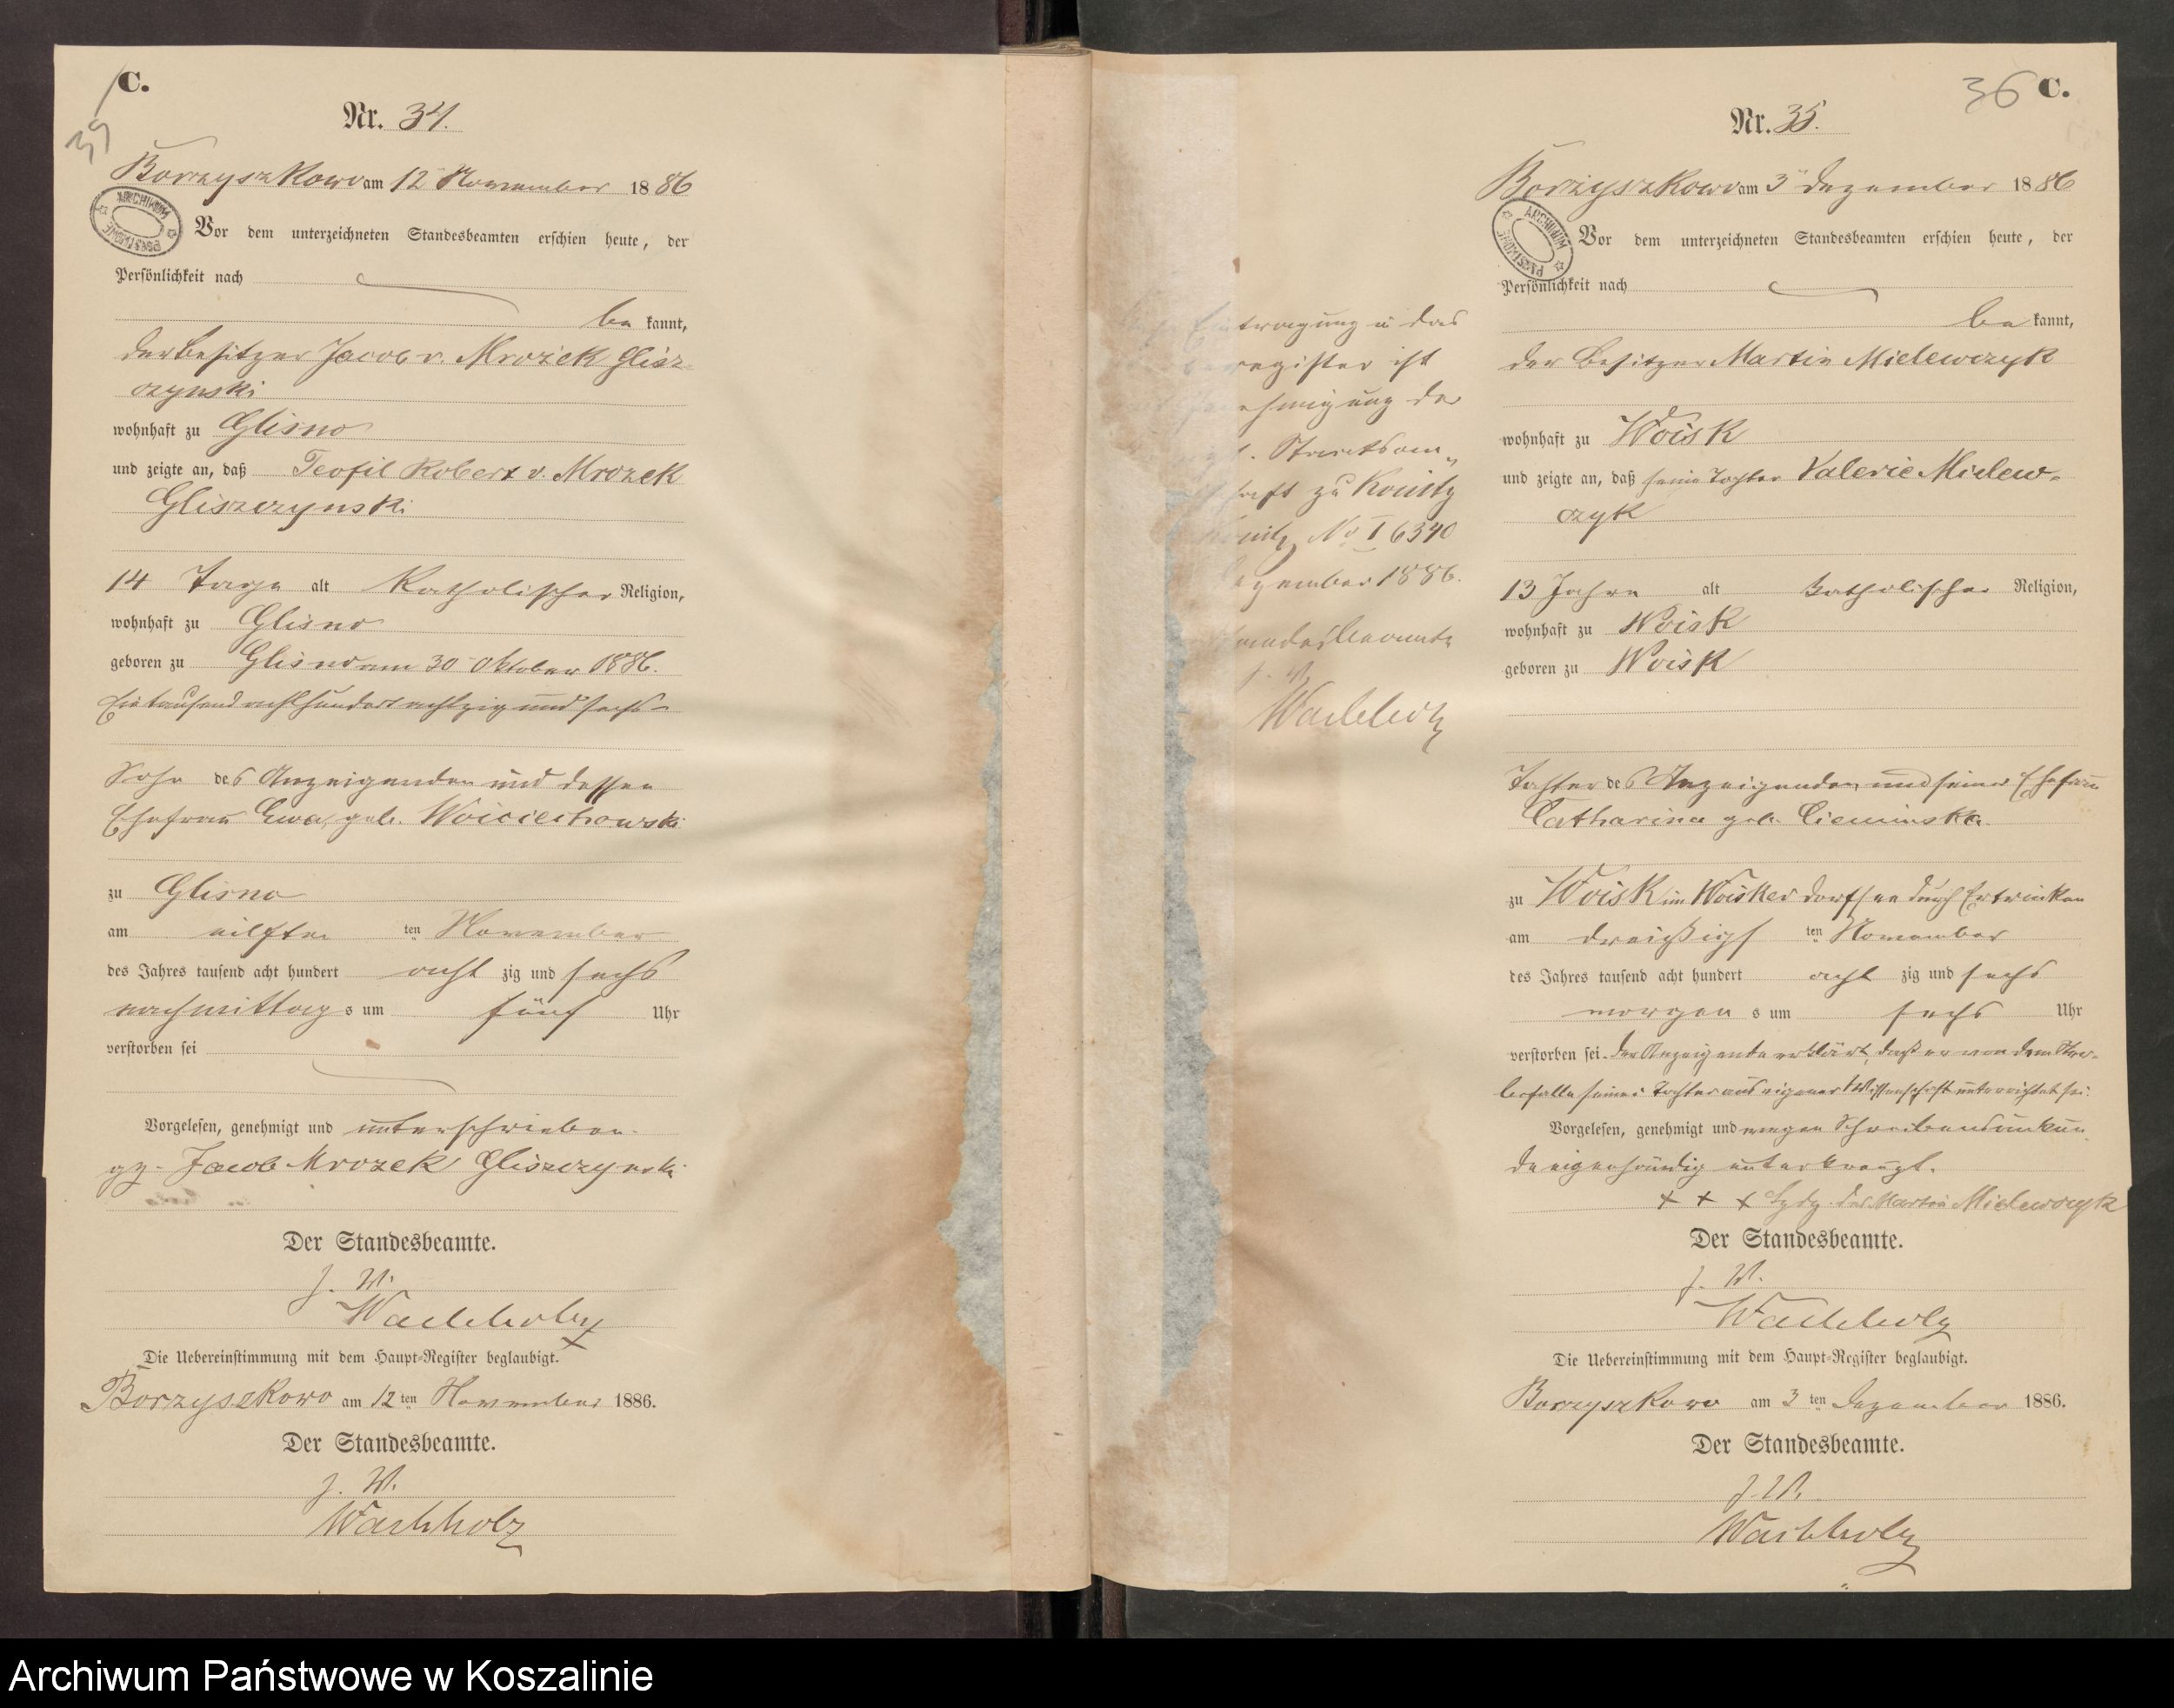 C.
Nr. 34.
Borzyszkowo am 12 November 1886
ARCHIWUM PAŃSTWOWE
Vor dem unterzeichneten Standesbeamten erschien heute, der
Persönlichkeit nach
be kannt,
der Besitzer Jacob v. Mrozek Glisz-
czynski
wohnhaft zu Glisno
und zeigte an, daß Teofil Robert v. Mrozek
Gliszczynski
14 Tage alt katholischer Religion,
wohnhaft zu Glisno
geboren zu Glisno am 30 Oktober 1886.
Eintausend achthundert achtzig und sechs
Sohn des Anzeigenden und dessen
Ehefrau Ewa, geb. Woiciechowski
zu Glisno
am eilften ten November
des Jahres tausend acht hundert acht zig und sechs
nachmittag s um fünf Uhr
verstorben sei
Vorgelesen, genehmigt und unterschrieben.
gz. Jacob Mrozek Gliszczynski
Der Standesbeamte.
J. V.
Wachholz
Die Uebereinstimmung mit dem Haupt-Register beglaubigt.
Borzyszkowo am 12 ten November 1886.
Der Standesbeamte.
J. V.
Wachholz
Eintragung u das
register ist
Genehmigung der
Staatsan-
schaft zu Konitz
Konitz No I 6340
Dezember 1886.
Standesbeamte
J. V.
Wachholz
36 C.
Nr. 35.
Borzyszkowo am 3 Dezember 1886
ARCHIWUM PAŃSTWOWE
Vor dem unterzeichneten Standesbeamten erschien heute, der
Persönlichkeit nach
be kannt,
der Besitzer Martin Mielewczyk
wohnhaft zu Woisk
und zeigte an, daß seine Tochter Valerie Mielew-
czyk
13 Jahre alt katholischer Religion,
wohnhaft zu Woisk
geboren zu Woisk
Tochter des Anzeigenden und seiner Ehefrau
Catharina geb. Cieminska
zu Woisk im Woisker Dorfsee durch Ertrinken
am dreißigs ten November
des Jahres tausend acht hundert acht zig und sechs
morgen s um sechs Uhr
verstorben sei. Der Anzeigende erklärt, daß er von dem Ster-
befalle seiner Tochter aus eigener Wissenschaft unterrichtet sei.
Vorgelesen, genehmigt und wegen Schreibensunkun-
de eigenhändig unterkreuzt.
+ + + des Martin Mielewczyk
Der Standesbeamte.
J. V.
Wachholz
Die Uebereinstimmung mit dem Haupt-Register beglaubigt.
Borzyszkowo am 3 ten Dezember 1886.
Der Standesbeamte.
J. V.
Wachholz
Archiwum Państwowe w Koszalinie